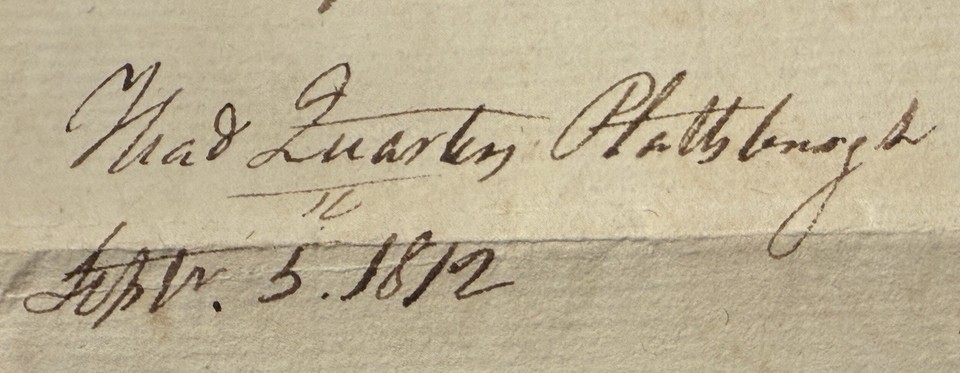 Head Quarters Plattsburgh
Septr. 5. 1812